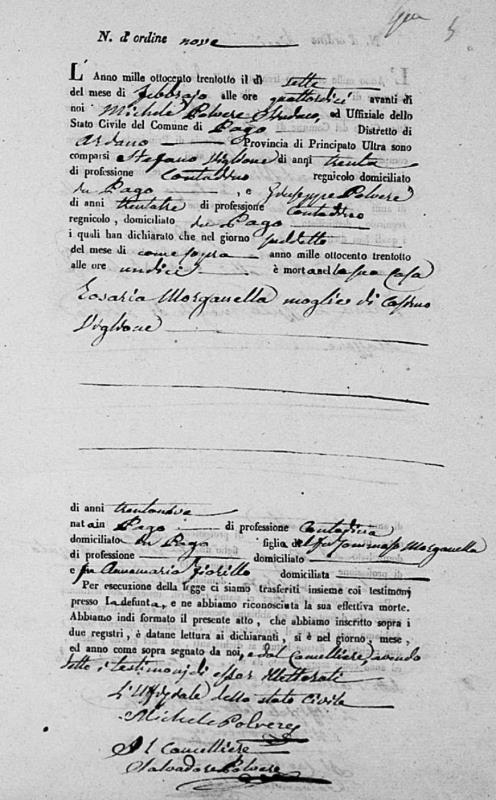 5
N. d'ordine nove
L' Anno mille ottocento trentotto il dì sette
del mese di Febbrajo alle ore quattordici avanti di
noi Michele Polvere Sindaco, ed Uffiziale dello
Stato Civile del Comune di Pago Distretto di
Ariano Provincia di Principato Ultra sono
comparsi Stefano Viglione di anni trenta
di professione Contadino regnicolo domiciliato
in Pago, e Giuseppe Polvere
di anni trentatre di professione Contadino
regnicolo, domiciliato in Pago
i quali han dichiarato che nel giorno suddetto
del mese di come sopra anno mille ottocento trentotto
alle ore undici è morta nella sua Casa
Rosaria Morganella moglie di Cosimo
Viglione
di anni trentanove
nata in Pago di professione Contadina
domiciliato in Pago figlia del fu Tommaso Morganella
di professione domiciliato
e fu Annamaria Fiorillo domiciliata
Per esecuzione della legge ci siamo trasferiti insieme coi testimonj
presso la defunta, e ne abbiamo riconosciuta la sua effettiva morte.
Abbiamo indi formato il presente atto, che abbiamo inscritto sopra i
due registri, è datane lettura ai dichiaranti, si è nel giorno, mese,
ed anno come sopra segnato da noi, e dal Cancelliere, avendo
detto i testimonj di esser illetterati
L'Uffiziale dello stato Civile
Michele Polvere
Il Cancelliere
Salvadore Polvere